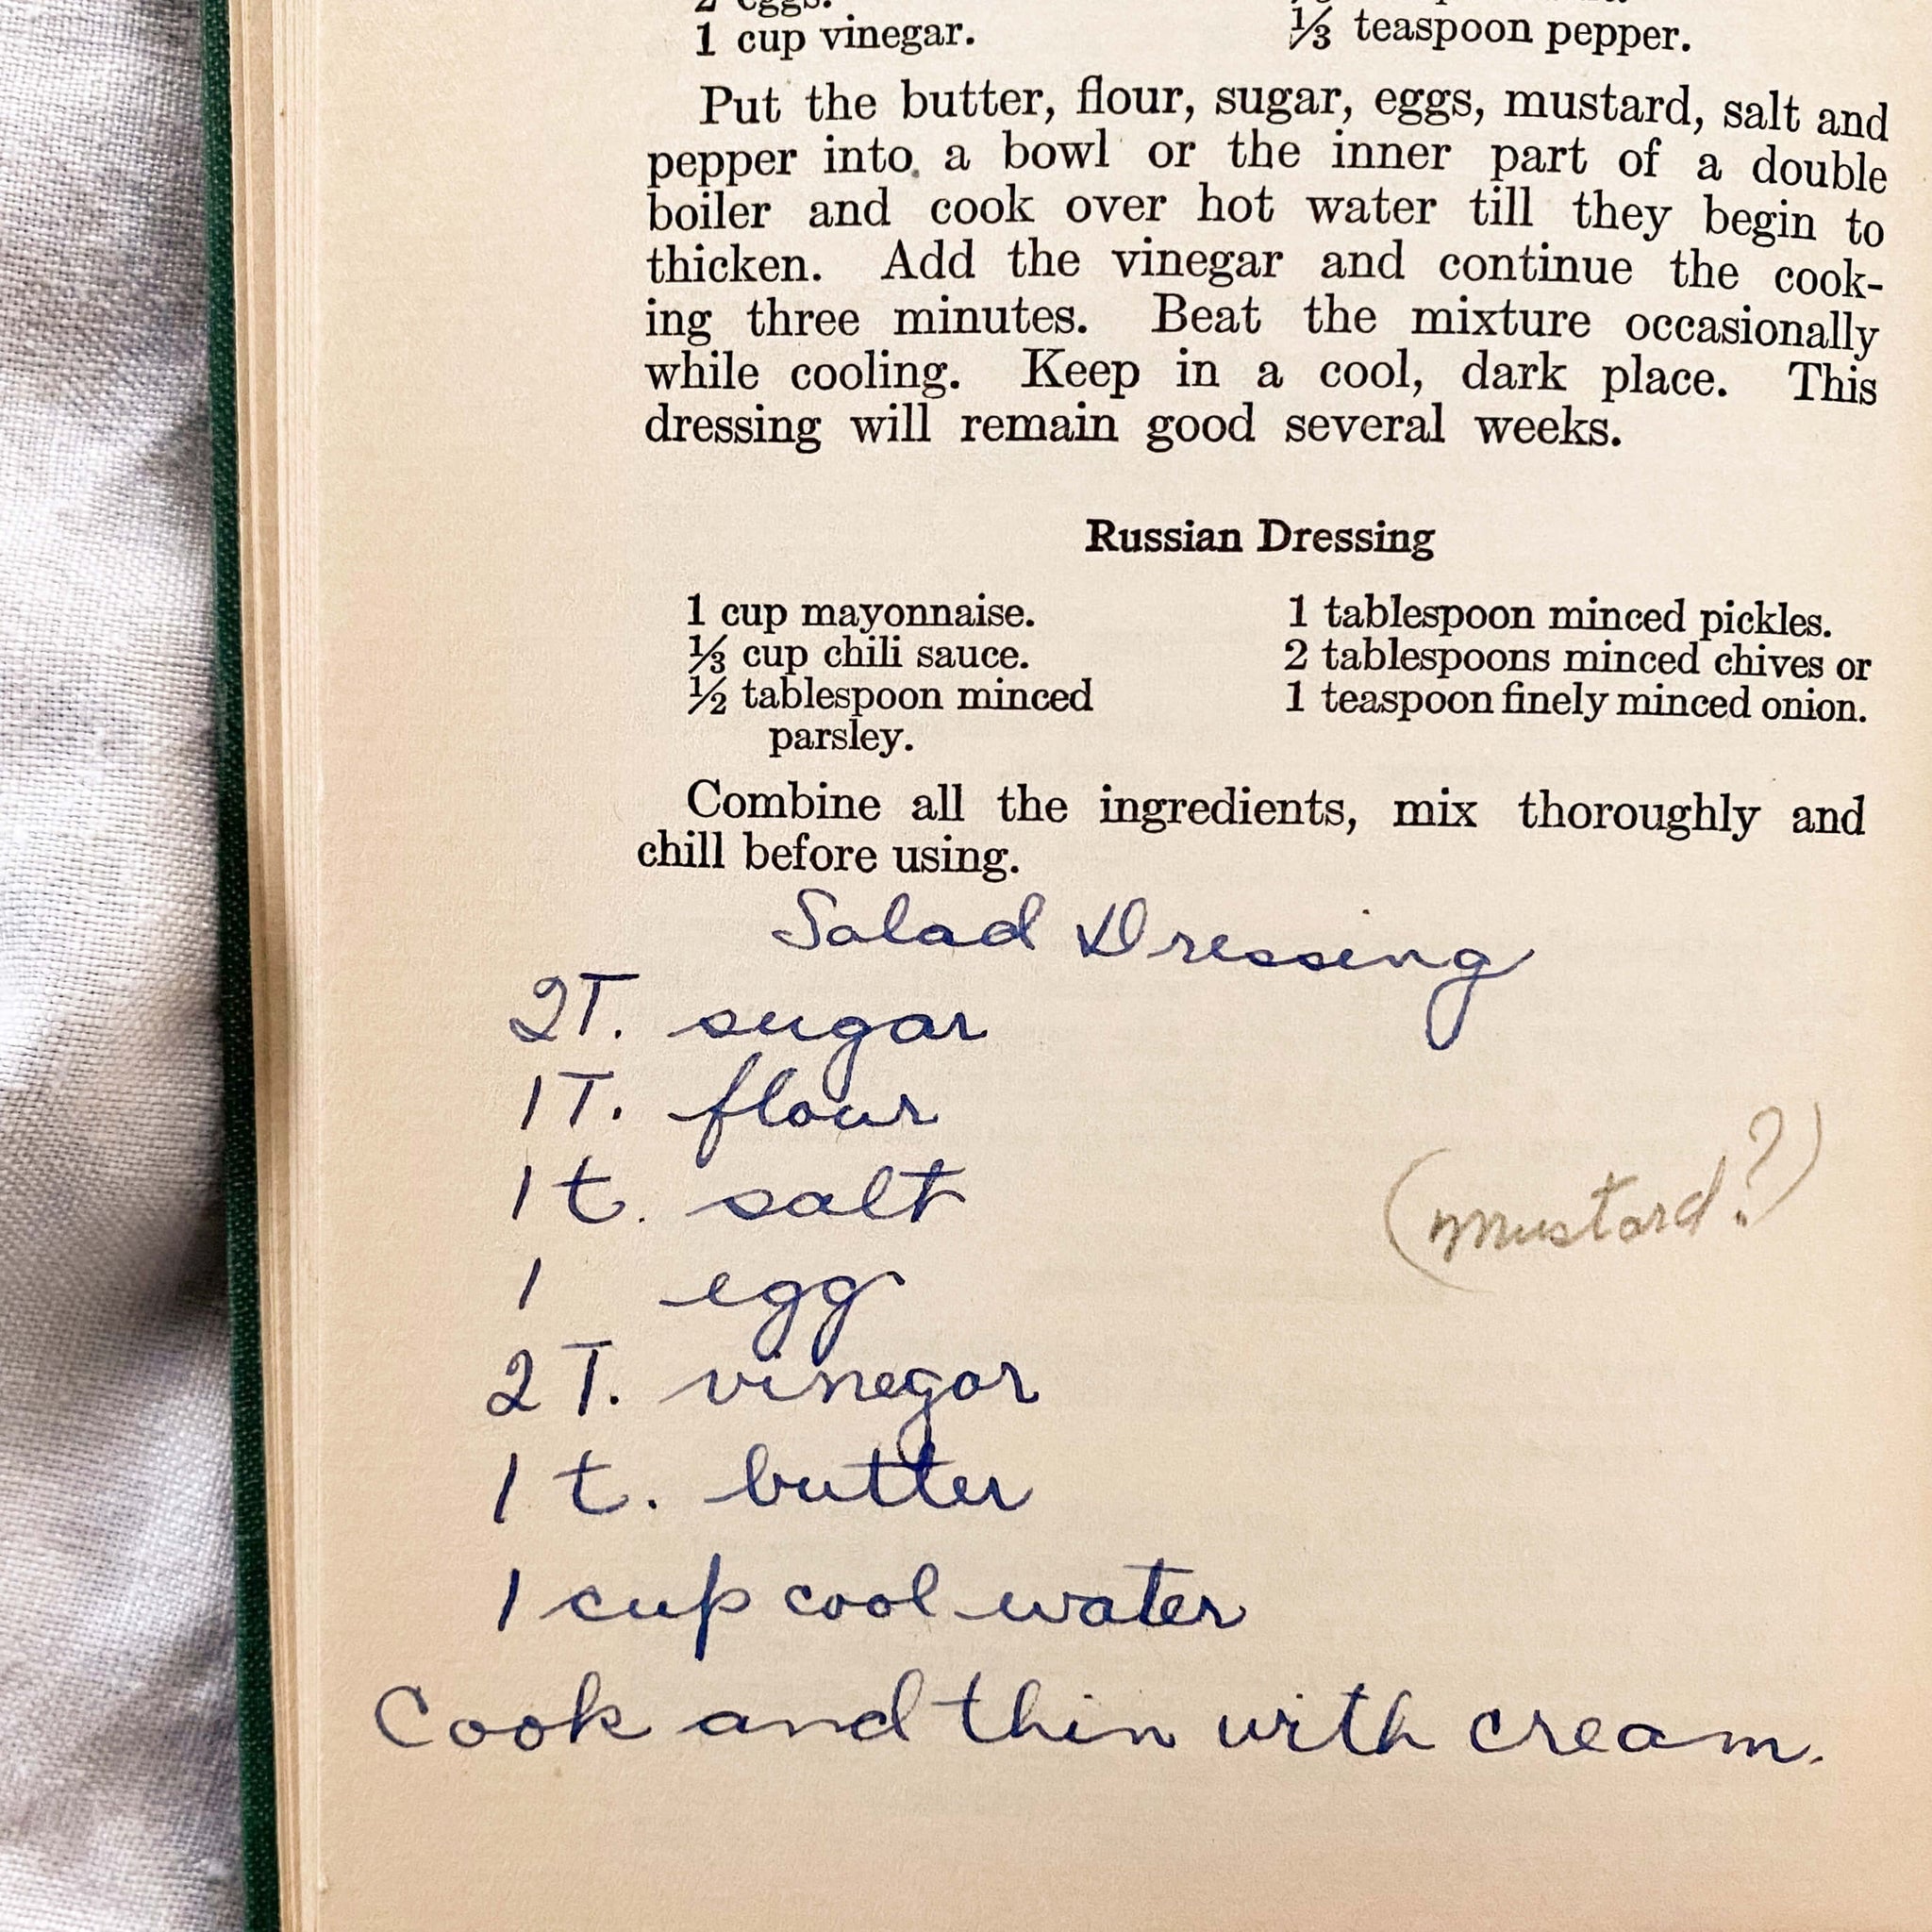 2 eggs.
1 cup vinegar.
⅓ teaspoon pepper.
Put the butter, flour, sugar, eggs, mustard, salt and
pepper into a bowl or the inner part of a double
boiler and cook over hot water till they begin to
thicken. Add the vinegar and continue the cook-
ing three minutes. Beat the mixture occasionally
while cooling. Keep in a cool, dark place. This
dressing will remain good several weeks.
Russian Dressing
1 cup mayonnaise.
⅓ cup chili sauce.
½ tablespoon minced
parsley.
1 tablespoon minced pickles.
2 tablespoons minced chives or
1 teaspoon finely minced onion.
Combine all the ingredients, mix thoroughly and
chill before using.
Salad Dressing
2T. sugar
1T. flour
1 t. salt
(mustard?)
1 egg
2 T. vinegar
1 t. butter
1 cup cool water
Cook and thin with cream.